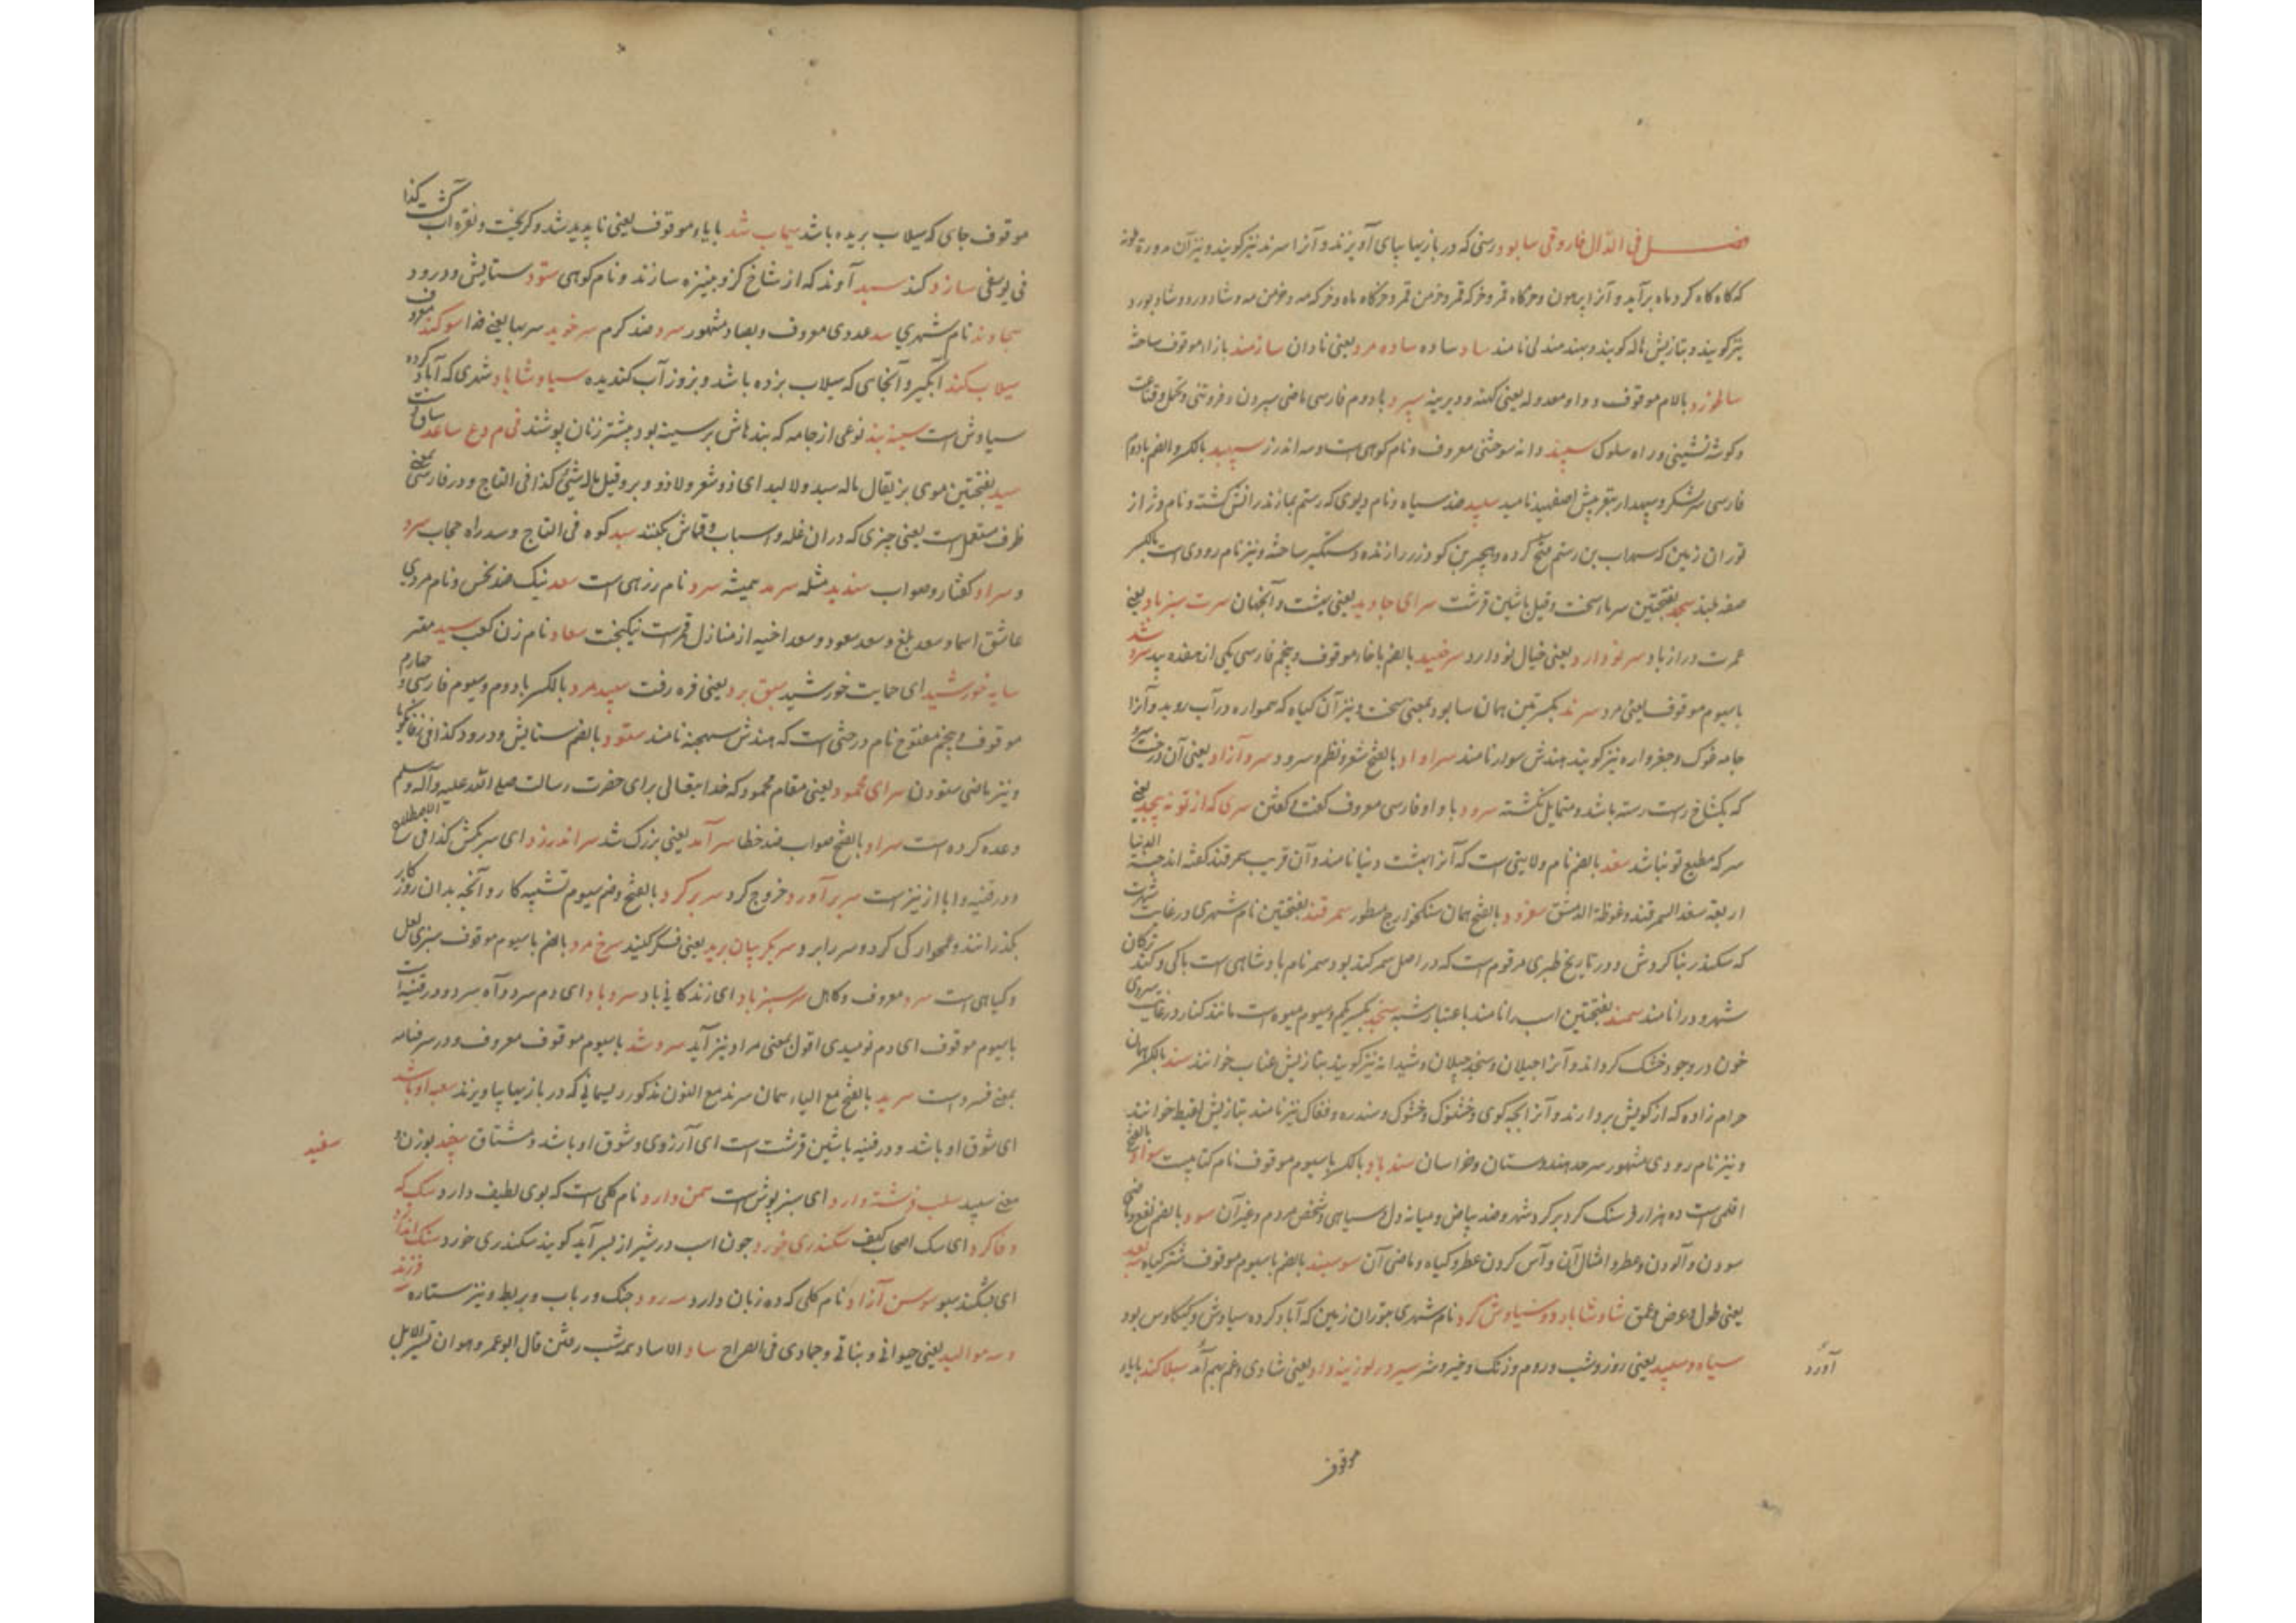 فصل فی الدال فاروقی سابود رسنی که در بازیها بپای آویزند و آنرا سرند نیز گویند و نیز آن دوره
که گاه گاه گرد ماه برآید و آنرا پرهون و خرگاه قمر و خرگه قمر و خرمن قمر و خرگاه ماه و خرگه مه و خرمن مه و شادورد و شاد بورد
نیز گویند و بتازیش هاله گویند و بهند مندلی نامند ساد ساده ساده مرد یعنی نادان سازمند بازا موقوف ساخته
سالخورد بالام موقوف و واو معدوله یعنی کهنه و دیرینه سپرد بادوم فارسی ماضی سپردن و فروتنی و تحمل و قناعت
و گوشه نشینی و راه سلوک سپند دانه سوختنی معروف و نام کوهی است و مه اندرز سپهبد بالکسر و الضم بادوم
فارسی سر لشکر و سپهدار بتعریبش اصفهبد نامند سپید ضد سیاه و نام دیوی که رستم بمازندرانش کشته و نام دژ از
توران زمین که سهراب بن رستم فتح کرده و هجیر بن گودرز را زنده دستگیر ساخته و نیز نام رودی است بالکسر
صفه بلند سجد بفتحتین سرما سخت و قیل باشین قرشت سرای جاوید یعنی بهشت و آنجهان سرت سبز باد یعنی
عمرت دراز باد سر تو دارد یعنی خیال تو دارد سرخبید بالضم باخاء موقوف و پنجم فارسی یکی از هفده بید سرد شد
باسیوم موقوف یعنی مرد سرند بکسرتین همان سابود بمعنی سخت و نیز آن گیاه که همواره در آب روید و آنرا
جامه غوک و جغزواره نیز گویند هندش سوار نامند سراواد بالفتح شعر و نظم و سرود سرو آزاد یعنی آن درخت سرو
که یکشاخ راست رسته باشد و متمایل نگشته سرود با واو فارسی معروف گفت و گفتن سری که از تو نه پیچد یعنی
سر که مطیع تو نباشد سغد بالضم نام ولایتی است که آنرا بهشت دنیا نامند و آن قریب سمرقند گفته اند جنة الدنیا
اربعة سغد السمرقند و غوطة الدمشق سغرود بالفتح همان سنگخوار مسطور سمرقند بفتحتین نام شهری در غایت شهرت
که سکندر بنا کردش و در تاریخ طبری مرقوم است که در اصل سمرکند بود و سمر نام بادشاهی است باکی و کند ترکان
شهر و در را نامند سمند بفتحتین اسپ را نامند باعتبار شبه سنجد بکسر یکم و سیوم میوه است مانند کنار در غایت سرخی
خون در وجود خشک گرداند و آنرا جیلان و سنجد جیلان و شیدانه نیز گویند بتازیش عناب خوانند سند بالکسر همان
حرام زاده که از کویش بردارند و آنرا بچه کوی و خشنوک و خشوک و سندره و فغاک نیز نامند بتازیش لقیط خوانند
و نیز نام رودی مشهور سرحد هندوستان و خراسان سندباد بالکسر باسیوم موقوف نام کتابیست سواد بالفتح
اقلیمی است ده هزار فرسنگ گرد بر گرد شهر و ضد بیاض و میانه دل و سیاهی و شخص مردم و غیر آن سود بالضم نفع و ماضی
سودن و آلودن و عطر و امثال آن و آس کردن عطر و گیاه و ماضی آن سوسبند بالضم باسیوم موقوف شتر گیاه سه بعد
یعنی طول و عرض و عمق شاد شاباد و سیاوش گرد نام شهری بتوران زمین که آباد کرده سیاوش کیکاوس بود
سیاه و سپید یعنی روز و شب و روم و زنگ و خیر و شر سیر در لوزینه داد یعنی شادی و غم بهم آمد سیلاکند بایاء
آورد
موقوف
موقوف جای که سیلاب بریده باشد سیماب شد بایاء موقوف یعنی ناپدید شد و گریخت و نقره آب گشت کذا
فی یوسفی سازد کند سبد آوند که از شاخ گز و جنیزه سازند و نام کوهی ستود ستایش و درود
سجاوند نام شهری سد عددی معروف و بصاد مشهور سرد ضد گرم سرخوید سربها یعنی فدا سوگند معروف
سیلاب کند آبگیر و آنجای که سیلاب برده باشد و بزور آب کندیده سیاوشاباد شهری که آباد کرده
سیاوش است سینه بند نوعی از جامه که بندهاش بر سینه بود بیشتر زنان پوشند فی م و ع ساعد
سبد بفتحتین موی بز یقال ماله سبد ولا لبد ای ذو شعر ولا ذو وبر و قیل ماله شیء کذا فی التاج و در فارسی بمعنی
ظرف مستعمل است یعنی چیزی که دران غله و اسباب و قماش بکنند سد کوه فی التاج و سد راه حجاب سرد
و سراد گفتار و صواب سندید مثله سرمد همیشه سرد نام رزهی است سعد نیک ضد نحس و نام مردی
عاشق اسما و سعد بلع و سعد سعود و سعد اخبیه از منازل قمرست نیکبخت سعاد نام زن کعب سید مهتر
سایه خورشید ای حمایت خورشید سبق برد یعنی فره رفت سپید مرد بالکسر بادوم و سیوم فارسی و چهارم
موقوف و پنجم مفتوح نام درختی است که هندش سهجنه نامند ستود بالضم ستایش و درود کذا فی زفانگویا
و نیز ماضی ستودن سرای محمود یعنی مقام محمود که خدا تعالی برای حضرت رسالت صلی الله علیه و آله و سلم
وعده کرده است سراد بالفتح صواب ضد خطا سرآمد یعنی بزرگ شد سر اندرزد ای سرکش کذا فی اصطلاح
و در قنیه و ابا از نیز است سر برآورد خروج کرد سربر کرد بالفتح و ضم سیوم تشبیه کار و آنچه بدان روزگار
بگذرانند و همواری کرد و سر رابر و سر بگریبان برید یعنی فکر کنید سرخ مرد بالضم باسیوم موقوف سبزی لعل
و گیاهی است سرد معروف و کاهل سرسبز باد ای زندگانی باد سرد باد ای دم سرد و آه سرد و در قنیه است
باسیوم موقوف ای دم نومیدی اقول بمعنی مراد نیز آید سرد شد باسیوم موقوف معروف و در سرفنامه
بمعنی فسرد است سرید بالفتح مع الیاء همان سرند مع النون مذکور ریسمانی که در بازیها بپا ویزند سغبه او باشد
ای شوق او باشد و در قنیه باشین قرشت است ای آرزوی و شوق او باشد و مشتاق سغد بوزن و
سفید
معنی سپید سلب فرشته دارد ای سبز پوش است سمن دارد نام گلی است که بوی لطیف دارد سگ که
وفا کرد ای سگ اصحاب کهف سکندری خورد چون اسپ در شیر از بسر آید گویند سکندری خورد سنگ اندازد
ای بشکند سبو سوسن آزاد نام گلی که ده زبان دارد سرود چنگ و رباب و بربط و نیز ستاره سه فرزند
و سه موالید یعنی حیوانی و نباتی و جمادی فی الصراح ساد الاساد همه شب رفتن قال ابو عمرو هو ان تسیر الابل